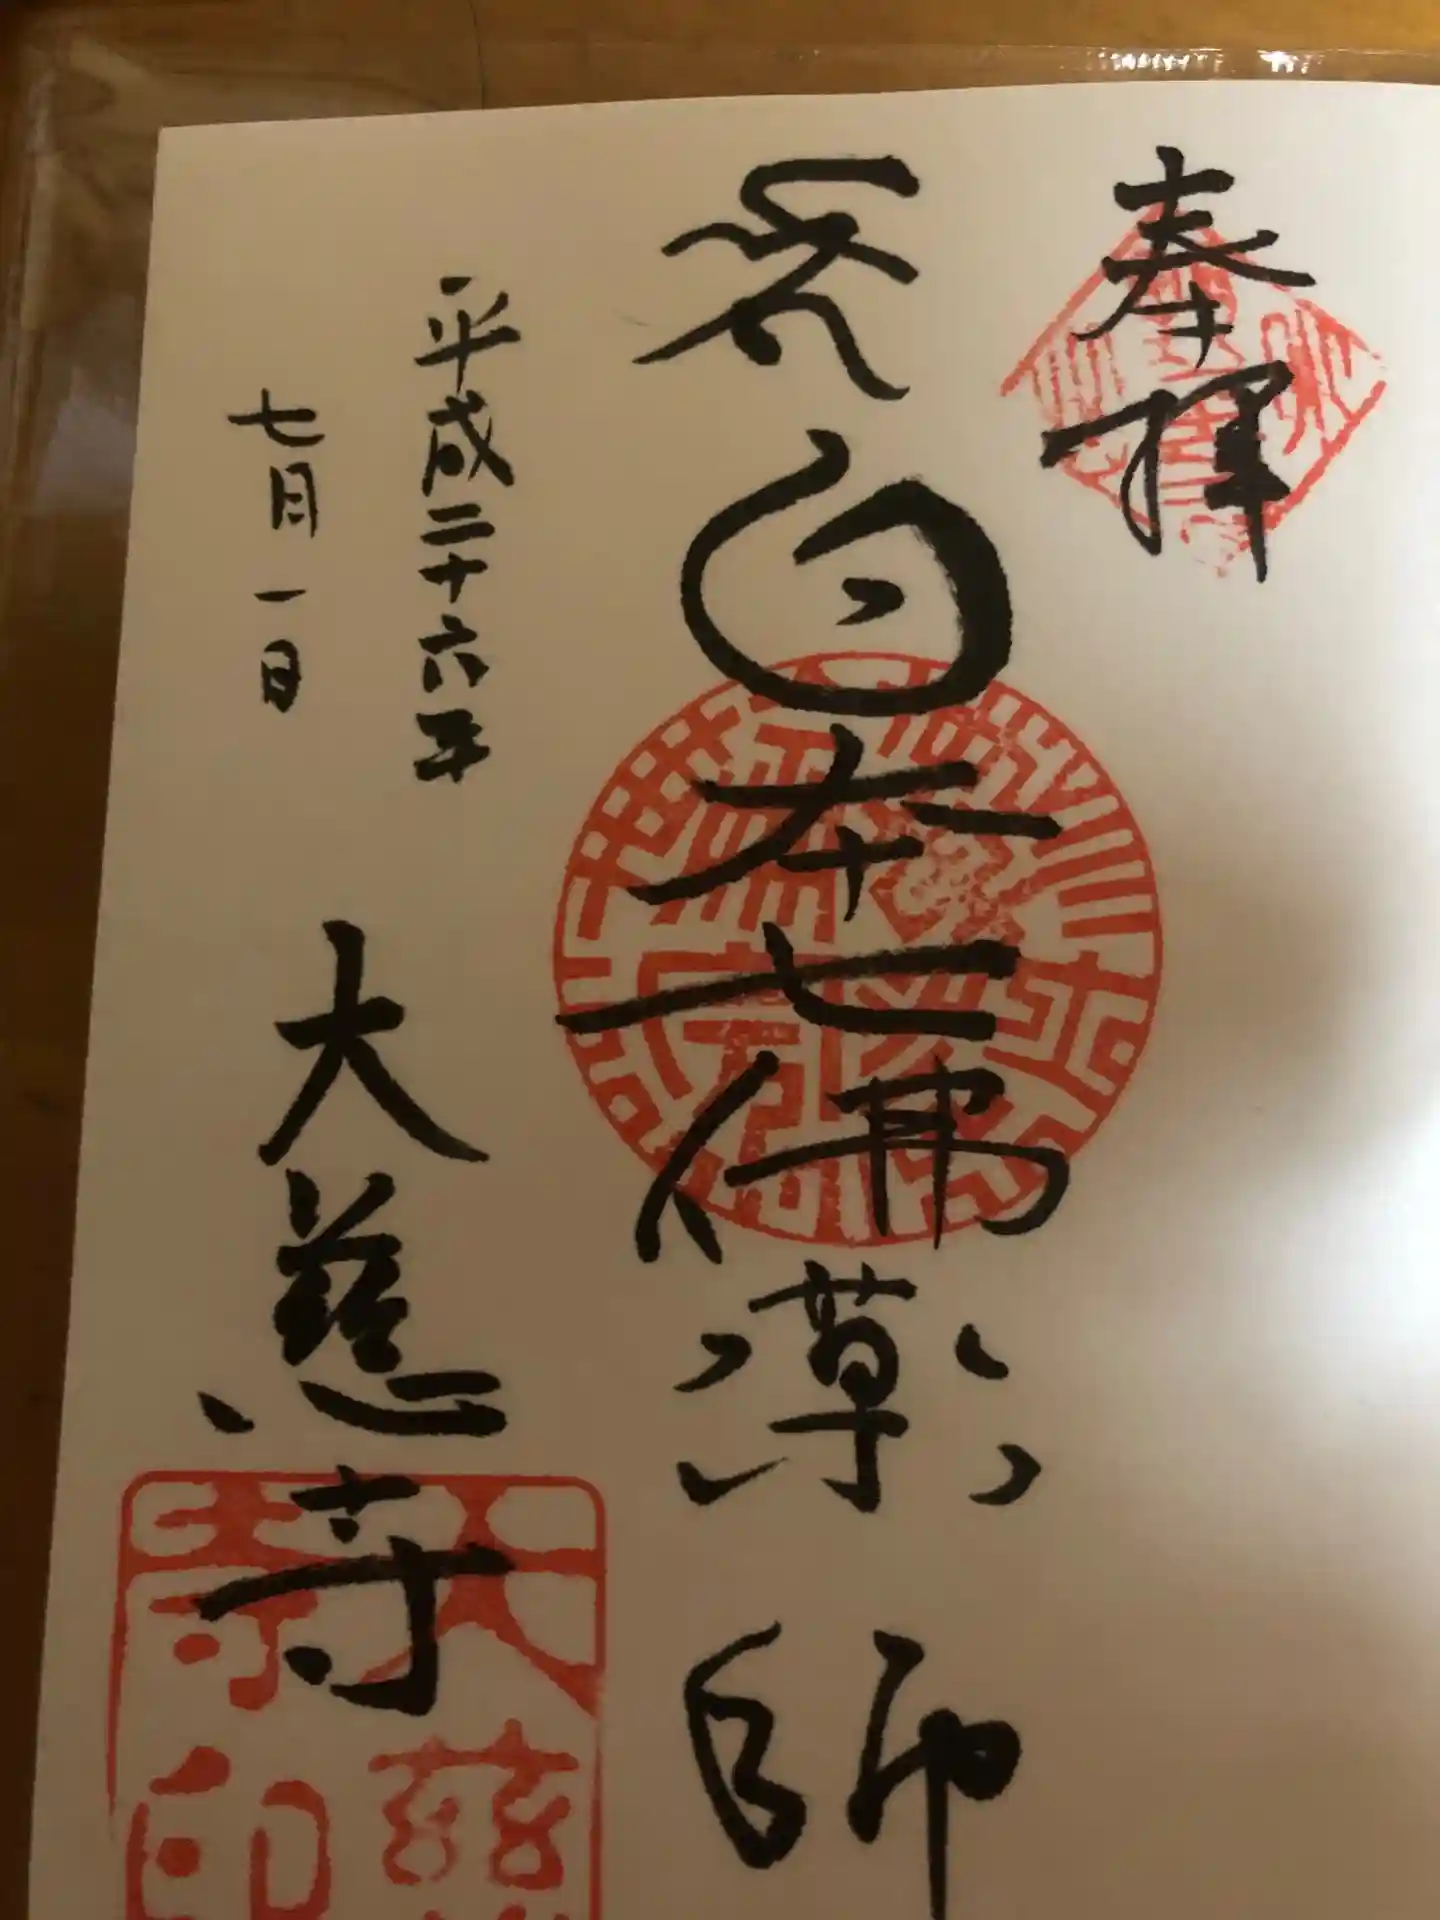 奉拝
日本七佛薬師
平成二十六年
七月一日
大慈寺
大慈
寺印